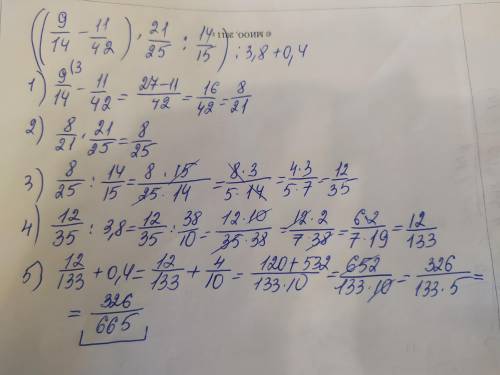 ((9/14 - 11/42) · 21/25 : 14/15) : 3,8 + 0,4
© МИОО, 2011
1) 9/14 (3 - 11/42 = 27-11/42 = 16/42 = 8/21
2) 8/21 · 21/25 = 8/25
3) 8/25 : 14/15 = 8 · 15/25 · 14 = 8 · 3/5 · 14 = 4 · 3/5 · 7 = 12/35
4) 12/35 : 3,8 = 12/35 : 38/10 = 12 · 10/35 · 38 = 12 · 2/7 · 38 = 6 · 2/7 · 19 = 12/133
5) 12/133 + 0,4 = 12/133 + 4/10 = 120 + 532/133 · 10 = 652/133 · 10 = 326/133 · 5 =
= 326/665